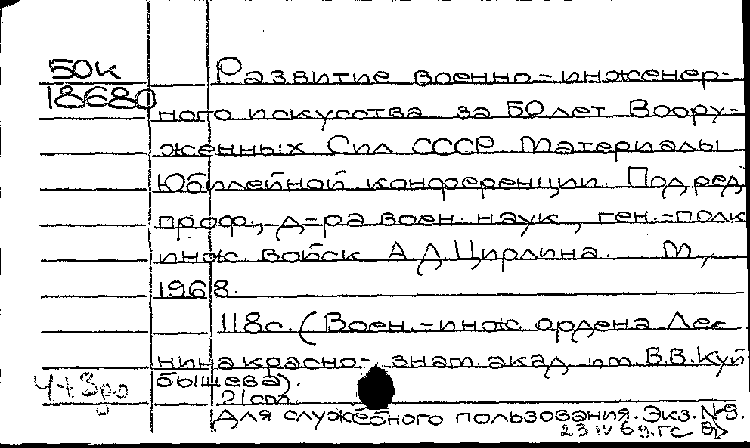 50к
18680
Развитие военно-инженер-
ного искусства за 50 лет Воору-
женных Сил СССР. Материалы
Юбилейной конференции. Под ред.
проф., д-ра воен. наук, ген.-полк
инж. войск А.Д. Цирлина. М.,
1968.
118с. (Воен.-инж. ордена Ле-
нина краснознам. акад. им В.В.Куй
бышева).
Для служебного пользования. Экз. №